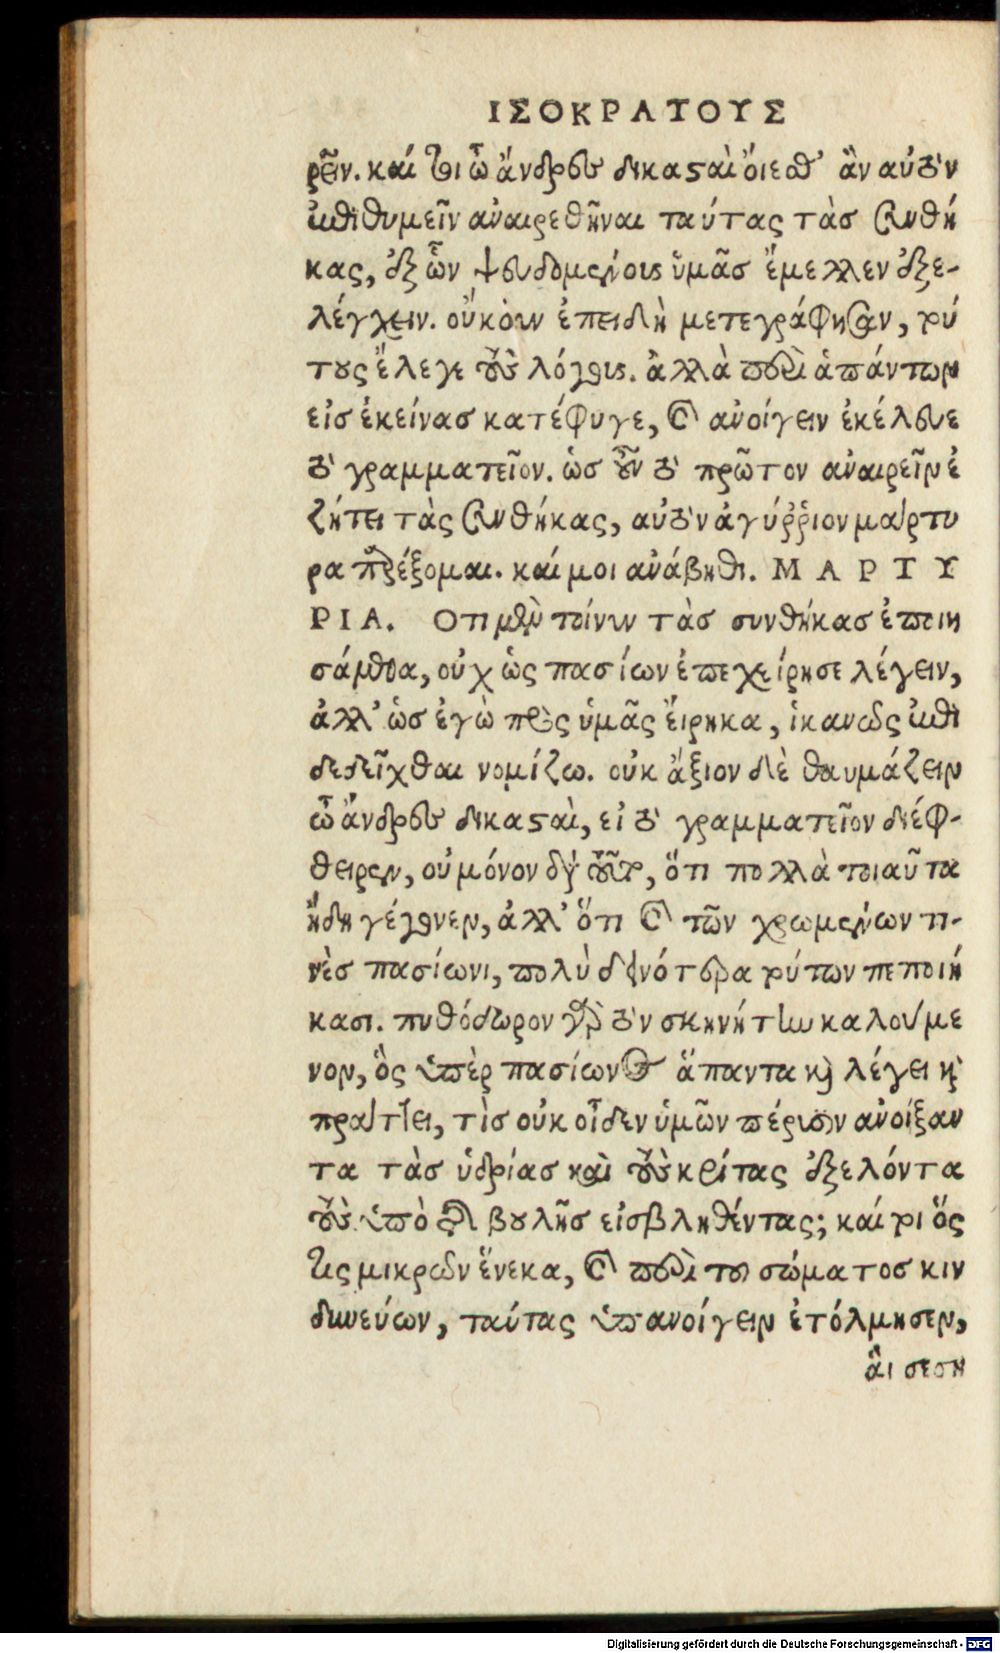 ΙΣΟΚΡΑΤΟΥΣ
ρεῖν. καί τοι ὦ ἄνδρες δικασταὶ ὄιεσθ’ ἂν αὐτὸν
ἐπιθυμεῖν αναιρεθῆναι ταύτας τὰσ συνθή
κας, ἐξ ὧν ψευδομένους ὑμᾶσ ἔμελλεν ἐξε-
λέγχειν. οὔκουν ἐπειδὴ μετεγράφησαν, τού
τους ἔλεγε τοὺς λόγους. ἀλλὰ περὶ ἁπάντων
εἰσ ἐκείνασ κατέφυγε, καὶ ανοίγειν ἐκέλευε
τὸ γραμματεῖον. ὡσ οὖν τὸ πρῶτον αναιρεῖν ἐ
ζήτει τὰς συνθήκας, αὐτὸν ἀγύῤῥιον μάρτυ
ρα παρέξομαι. καί μοι ανάβηθι. ΜΑΡΤΥ
ΡΙΑ. Οτι μὲν τοίνυν τὰσ συνθήκασ ἐποιη
σάμεθα, οὐχ ὡς πασίων ἐπεχείρησε λέγειν,
ἀλλ’ ὡσ ἐγὼ πρὸς ὑμᾶς ἔιρηκα, ἱκανῶς ἐπι
δεδεῖχθαι νομίζω. οὐκ ἄξιον δὲ θαυμάζειν
ὦ ἄνδρες δικασταὶ, εἰ τὸ γραμματεῖον διέφ-
θειρεν, οὐ μόνον διὰ τοῦτο, ὅτι πολλὰ τοιαῦτα
ἤδη γέγονεν, ἀλλ’ ὅτι καὶ τῶν χρωμένων τι-
νὲσ πασίωνι, πολὺ δεινότερα τούτων πεποιή
κασι. πυθόδωρον γὰρ τὸν σκηνήτην καλούμε
νον, ὃς ὑπὲρ πασίωνος ἅπαντα καὶ λέγει καὶ
πράττει, τὶσ οὐκ οἶδεν ὑμῶν πέρυσιν ανοίξαν
τα τὰσ ὑδρίασ καὶ τοὺς κρίτας ἐξελόντα
τοὺς ὑπὸ τῆς βουλῆσ εἰσβληθέντας; καί τοι ὅς
τις μικρῶν ἕνεκα, καὶ περὶ του σώματοσ κιν
δυνεύων, ταύτας ὑπανοίγειν ἐτόλμησεν,
ἃι σεση
Digitalisierung gefördert durch die Deutsche Forschungsgemeinschaft - DFG